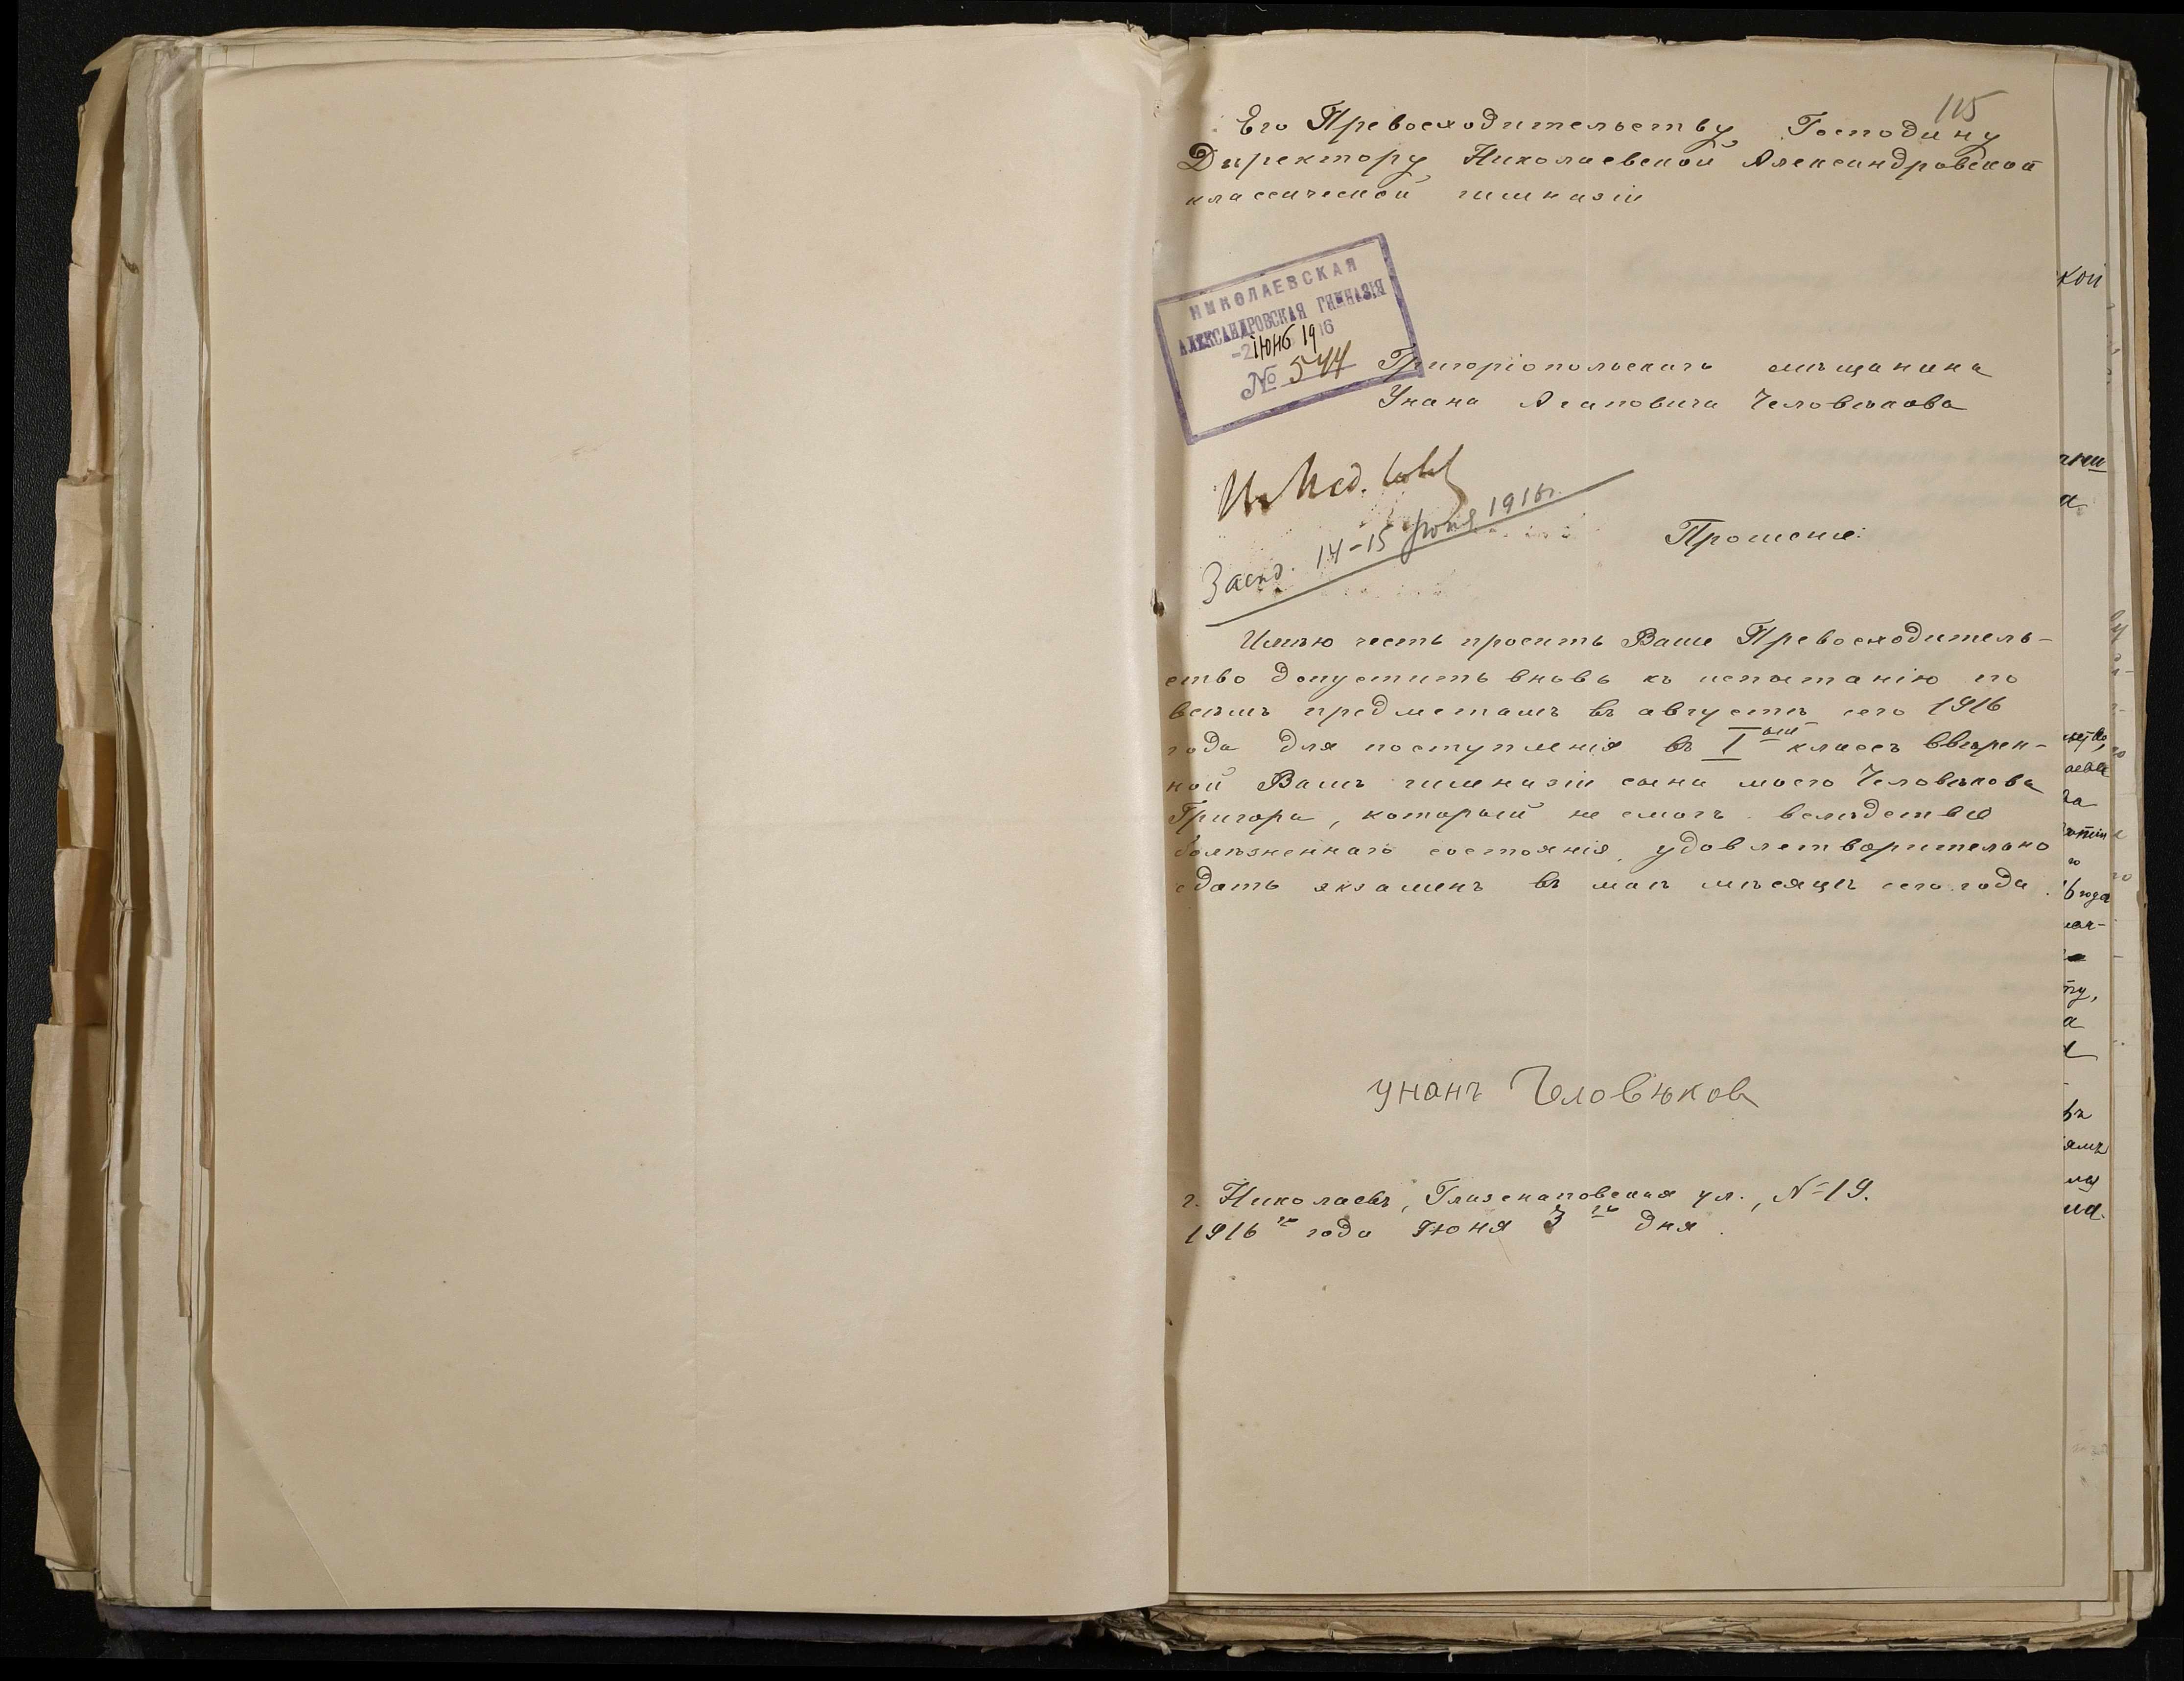 115
Его Превосходительству Господину
Директору Николаевской Александровской
классической гимназіи
НИКОЛАЕВСКАЯ
АЛЕКСАНДРОВСКАЯ ГИМНАЗІЯ
-2 ІЮНЬ 1916
№ 544
Григоріопольскаго мѣщанина
Унана Агаповича Человѣкова
Засѣд. 14-15 Іюня 1916 г.
Прошеніе
Имѣю честь просить Ваше Превосходитель-
ство допустить вновь къ испытанію по
всѣмъ предметамъ въ августѣ сего 1916
года для поступленія въ I ый классъ ввѣрен-
ной Вамъ гимназіи сына моего Человѣкова
Григора, который не смогъ вслѣдствіе
болѣзненнаго состоянія удовлетворительно
сдать экзаменъ въ маѣ мѣсяцѣ сего года.
унанъ Человѣков
г. Николаевъ, Глазенаповская ул., № 19.
1916 го года Іюня 3 го дня.